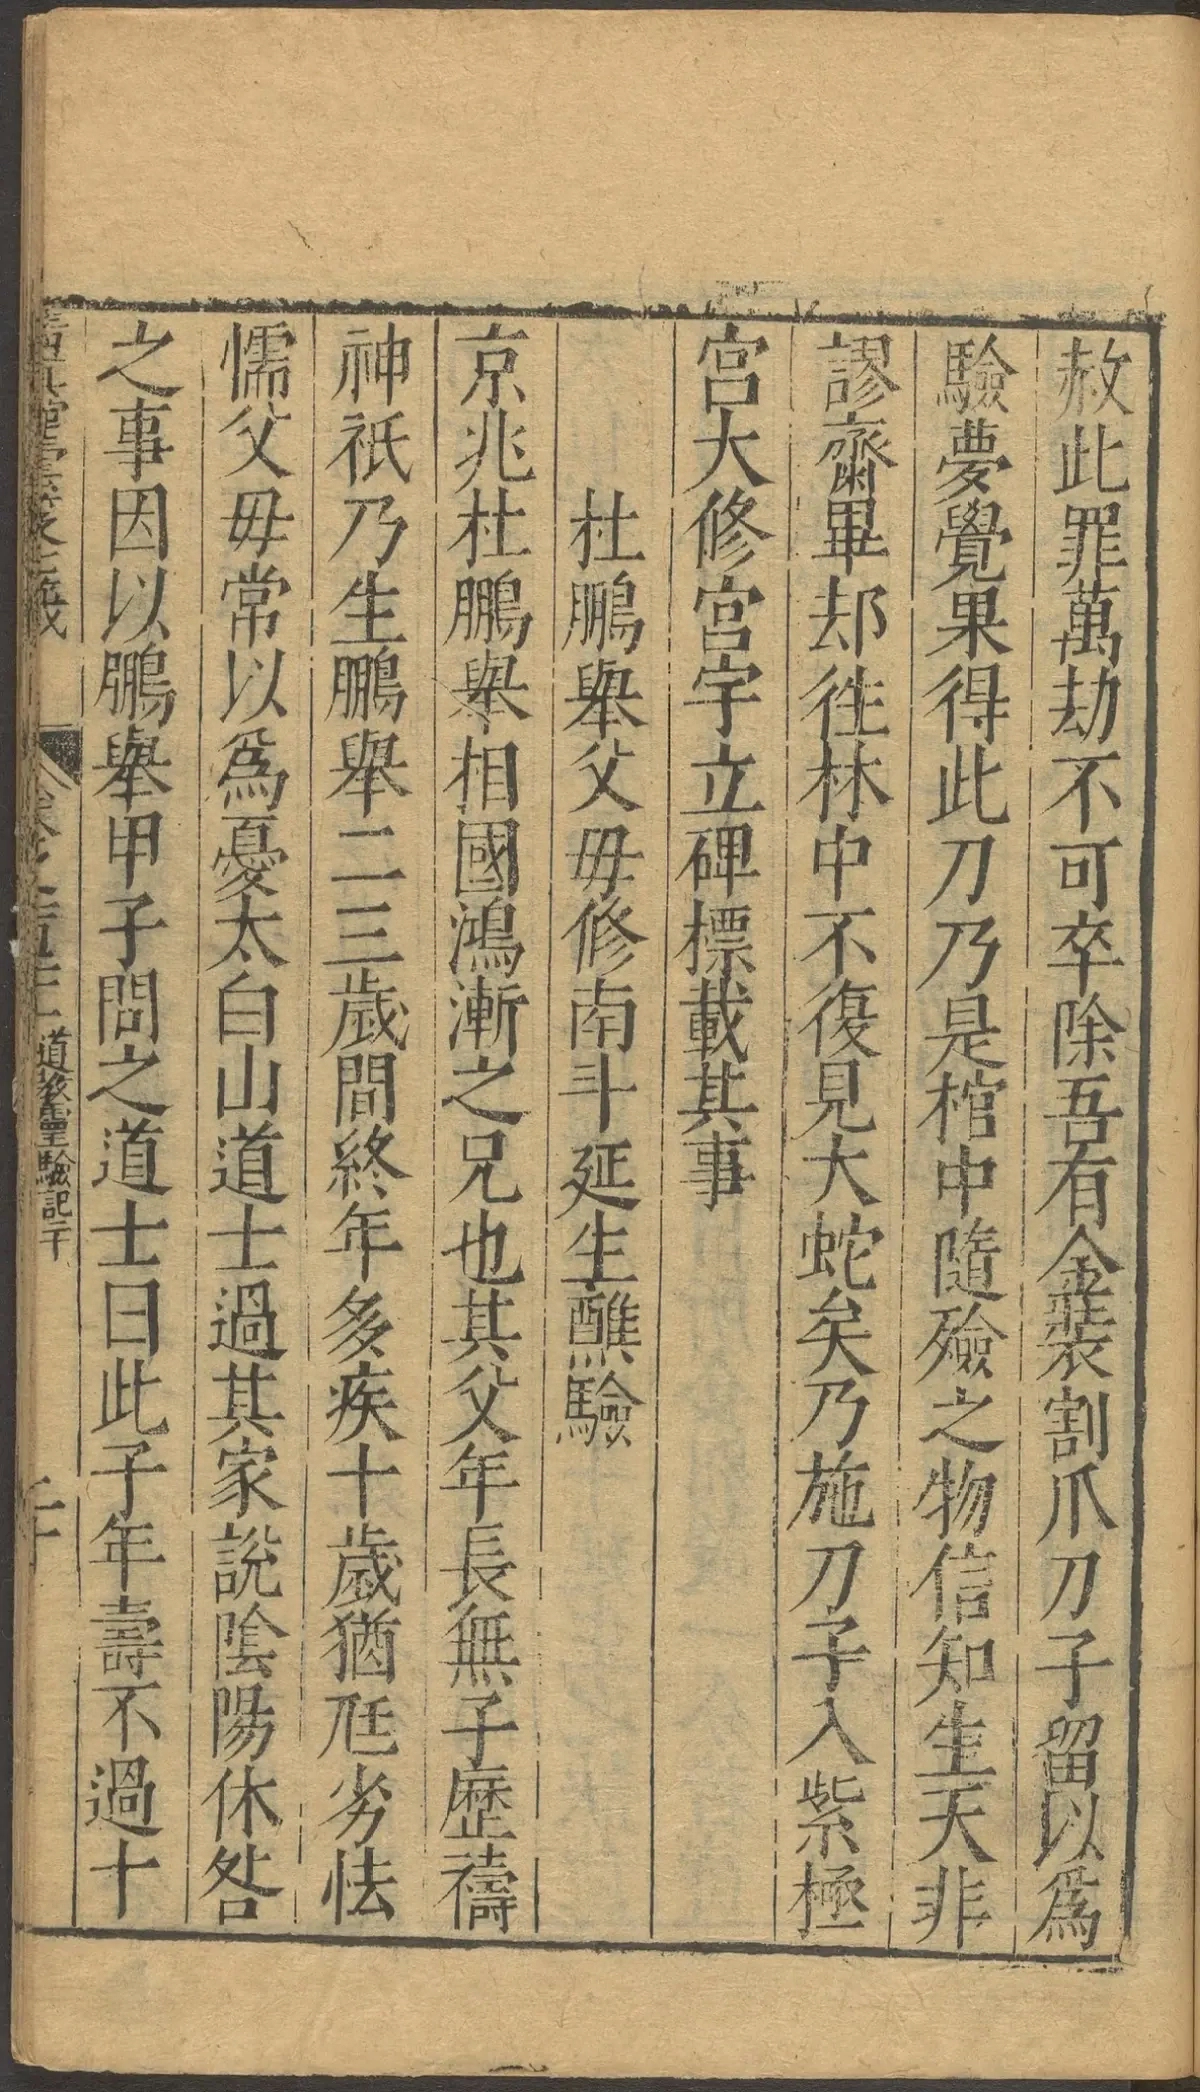 赦此罪萬劫不可卒除吾有金裝割爪刀子留以爲
驗夢覺果得此刀乃是棺中隨殮之物信知生天非
謬齋畢却徃林中不復見大蛇矣乃施刀子入紫極
宮大修宮宇立碑標載其事
杜鵬舉父毋修南斗延生醮驗
京兆杜鵬舉相國鴻漸之兄也其父年長無子歷禱
神祇乃生鵬舉二三歲間終年多疾十歲猶尫劣怯
懦父毋常以爲憂太白山道士過其家說陰陽休咎
之事因以鵬舉甲子問之道士曰此子年壽不過十
道教靈驗記二十